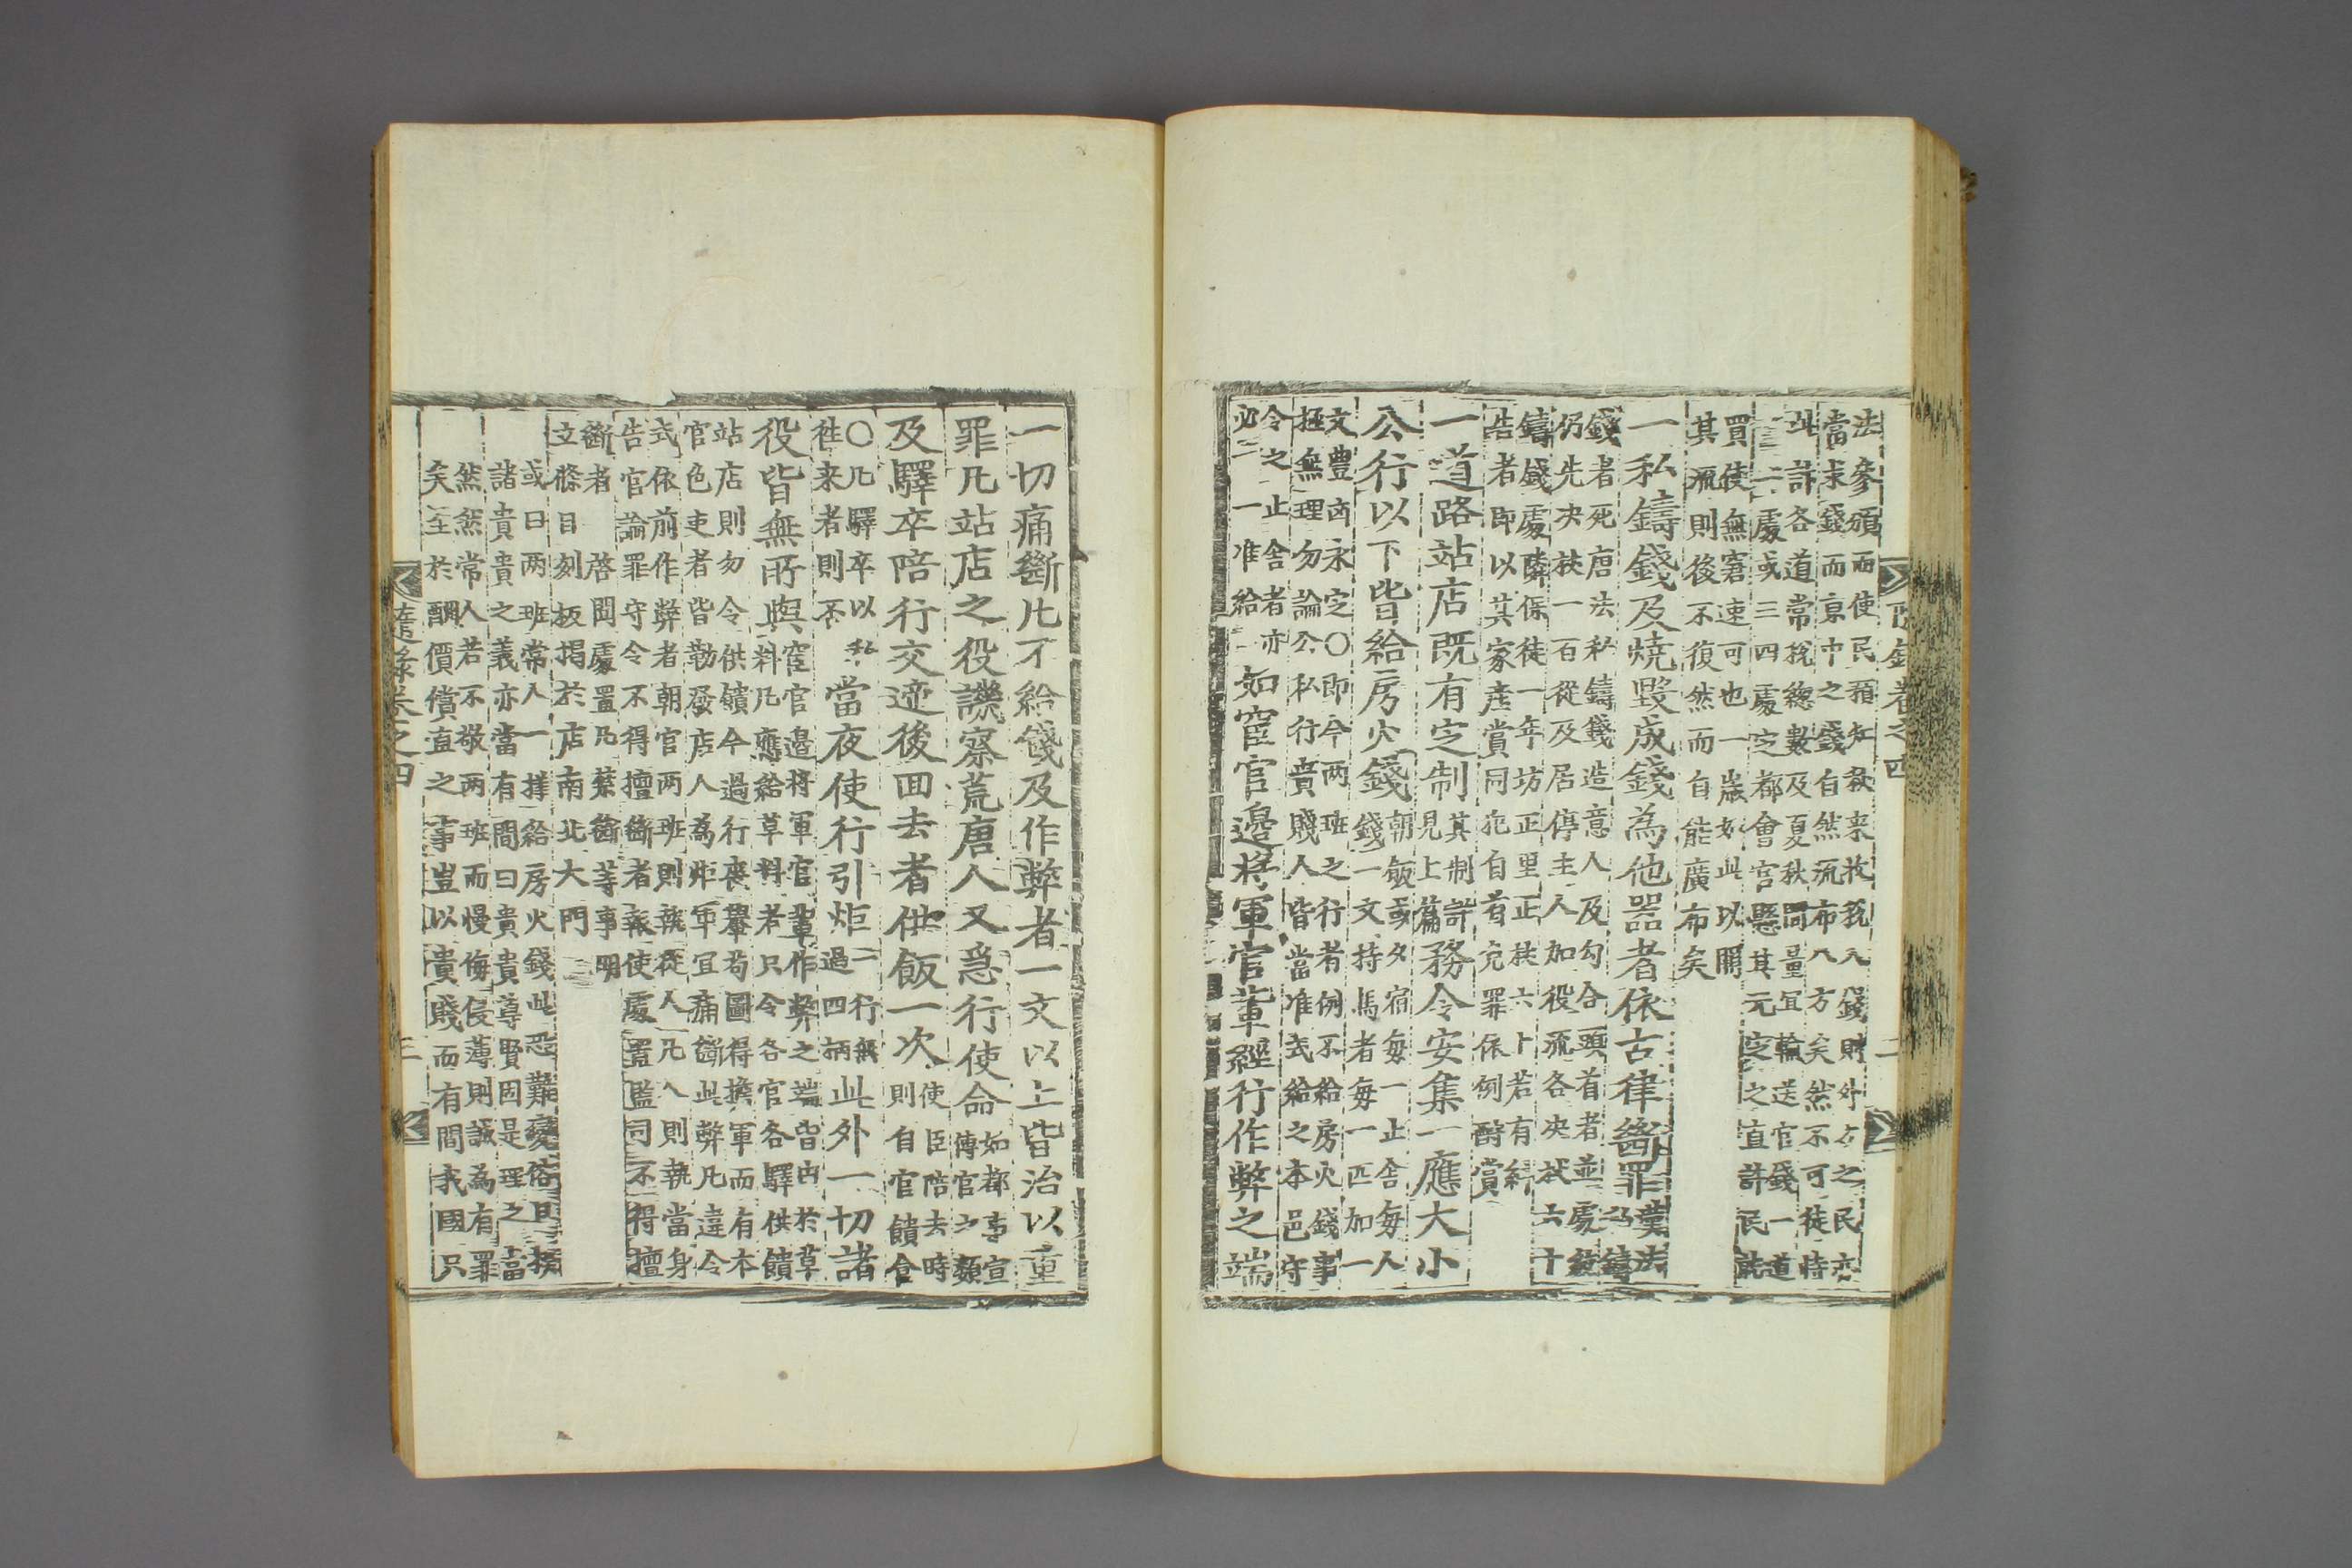 法參頒而使民預知秋来收稅入錢財外方之民亦
當求錢而京中之錢自然流布八方矣然不可徒恃
計各道常稅緫數及夏秋間量宜輸送官錢一道
一二處或三四處定都會官懸其元定之直許民
買使無窘速可也一嵗如此以開
其源則後不復然而自能廣布矣
一私鑄錢及燒毀成錢為他器者依古律斷罪
漢法鑄
錢者死唐法私鑄錢造意人及勾合頭首者並處絞
仍先决杖一百從及居停主人加役流各决杖六十
鑄錢處隣保徒一年坊正里正杖六十若有糾
告者即以其家産賞同犯自首免罪依例酧賞
一道路站店既有定制
其制詳
見上篇
務令安集一應大小
公行以下皆給房火錢
朝飯或夕宿每一止舍每人
錢一文持馬者每一匹加一
文豊㐫永定〇即今两班之行者例不給房火錢事
極無理勿論公私行貴賤人皆當准式給之本邑守
令之止舍者亦
必一一准給
如宦官邉将軍官軰經行作弊之端
隨錄卷之四
二
一切痛斷凡不給錢及作弊者一文以上皆治以重
罪凡站店之役譏察荒唐人又爲行使命
如都事宣
傳官之類
及驛卒陪行交遞後回去者供飯一次
使臣陪去時
則自官饋食
〇凡驛卒以私
徃来者則不
當夜使行引炬
二行無
過四柄
此外一切諸
役皆無所與
宦官邉将軍官軰作弊之端皆由於草
料凡應給草料者只令各官各驛供饋
站店則勿令供饋今過行喪轝茍圖得擔軍而有本
官色吏者皆勒發店人為炬軍宜痛斷此弊凡違令
式依前作弊者朝官两班則執從人凡人則執當身
告官論罪守令不得擅斷者報使處置監司不得擅
斷者 啓聞處置凡禁斷等事明
立條目刻板揭於店南北大門
或曰两班常人一㨾給房火錢此恐難變俗曰
諸貴貴之義亦當有間曰貴貴尊賢固是理之當
然然常人若不敬两班而慢侮侵薄則誠為有罪
矣至於酬價償直之事豈以貴賤而有間我國只
隨錄卷之四
三